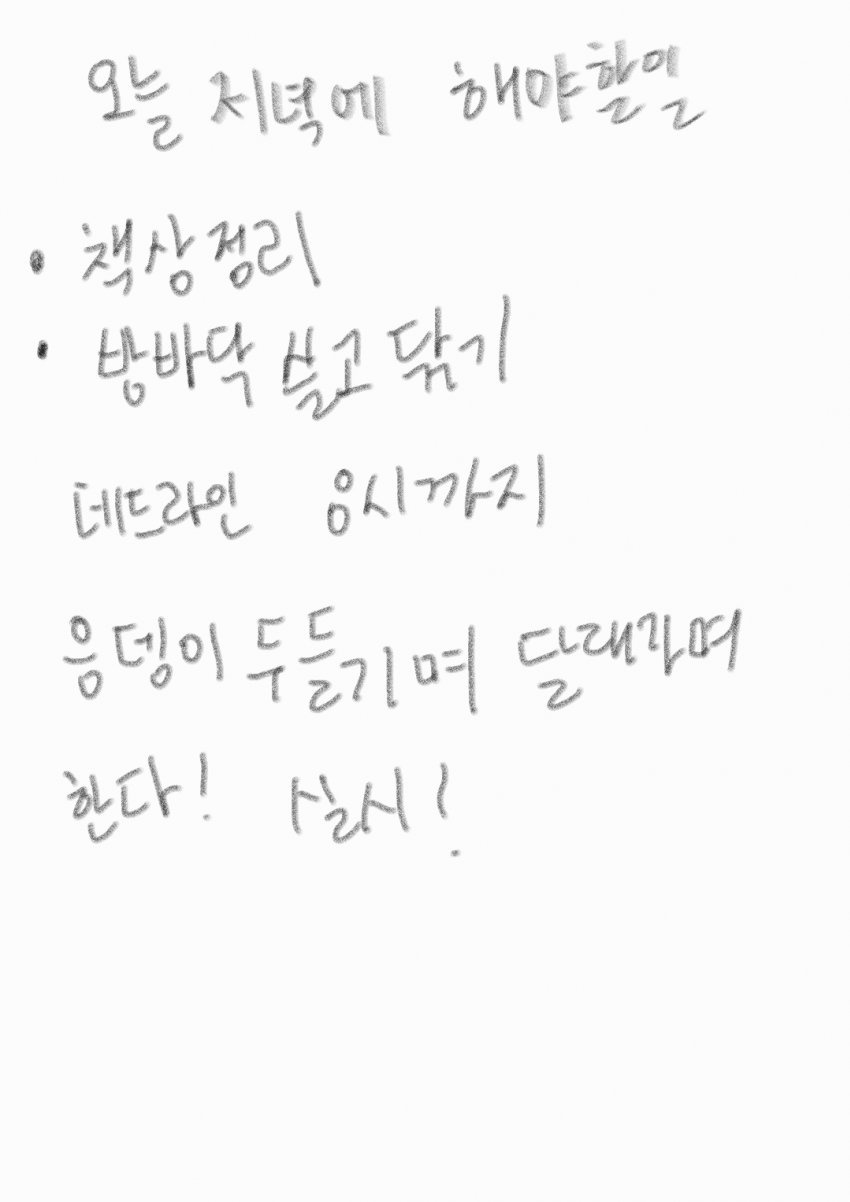 오늘 저녁에 해야할일
• 책상정리
• 방바닥 쓸고 닦기
데드라인 8시까지
응뎅이 두들기며 달래가며
한다! 실시!